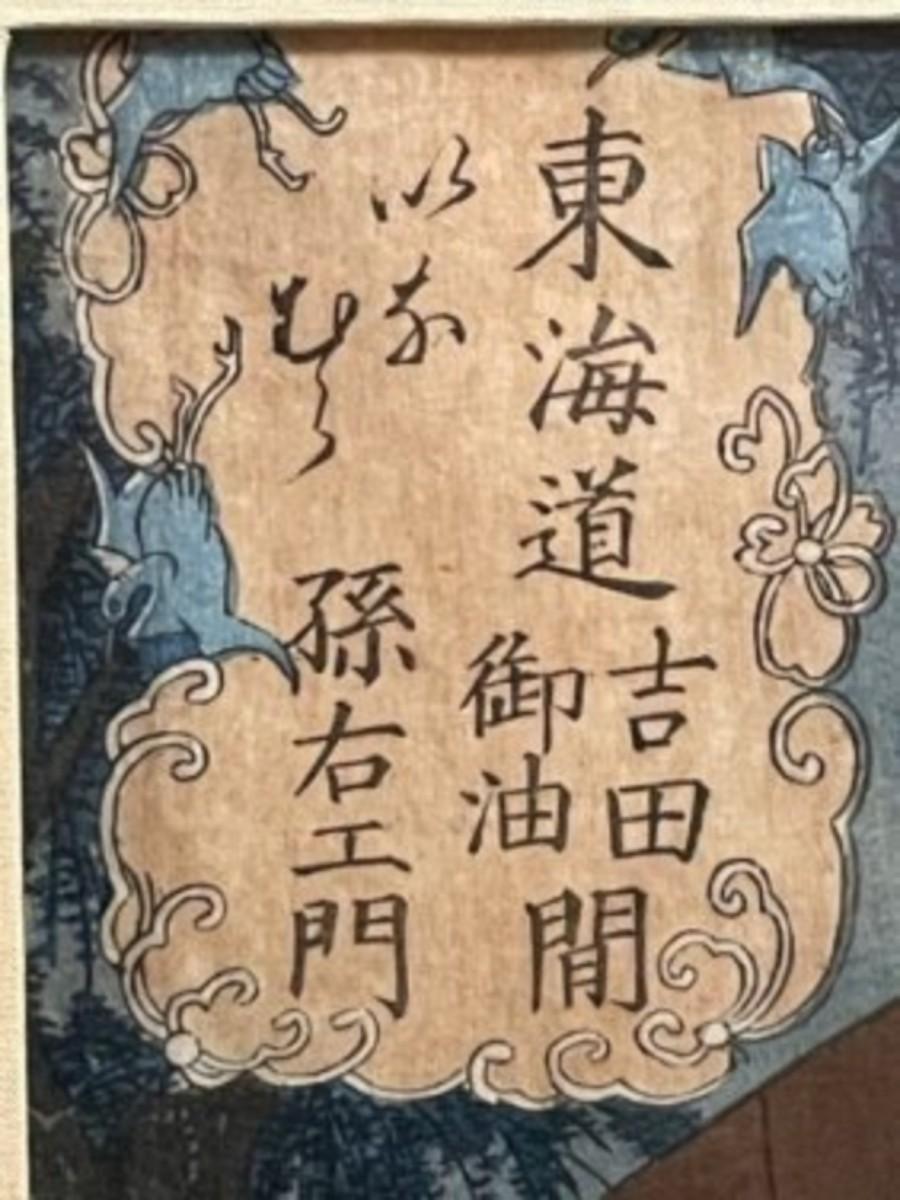 東海道
吉田
御油
間
以な
むら
孫右エ門